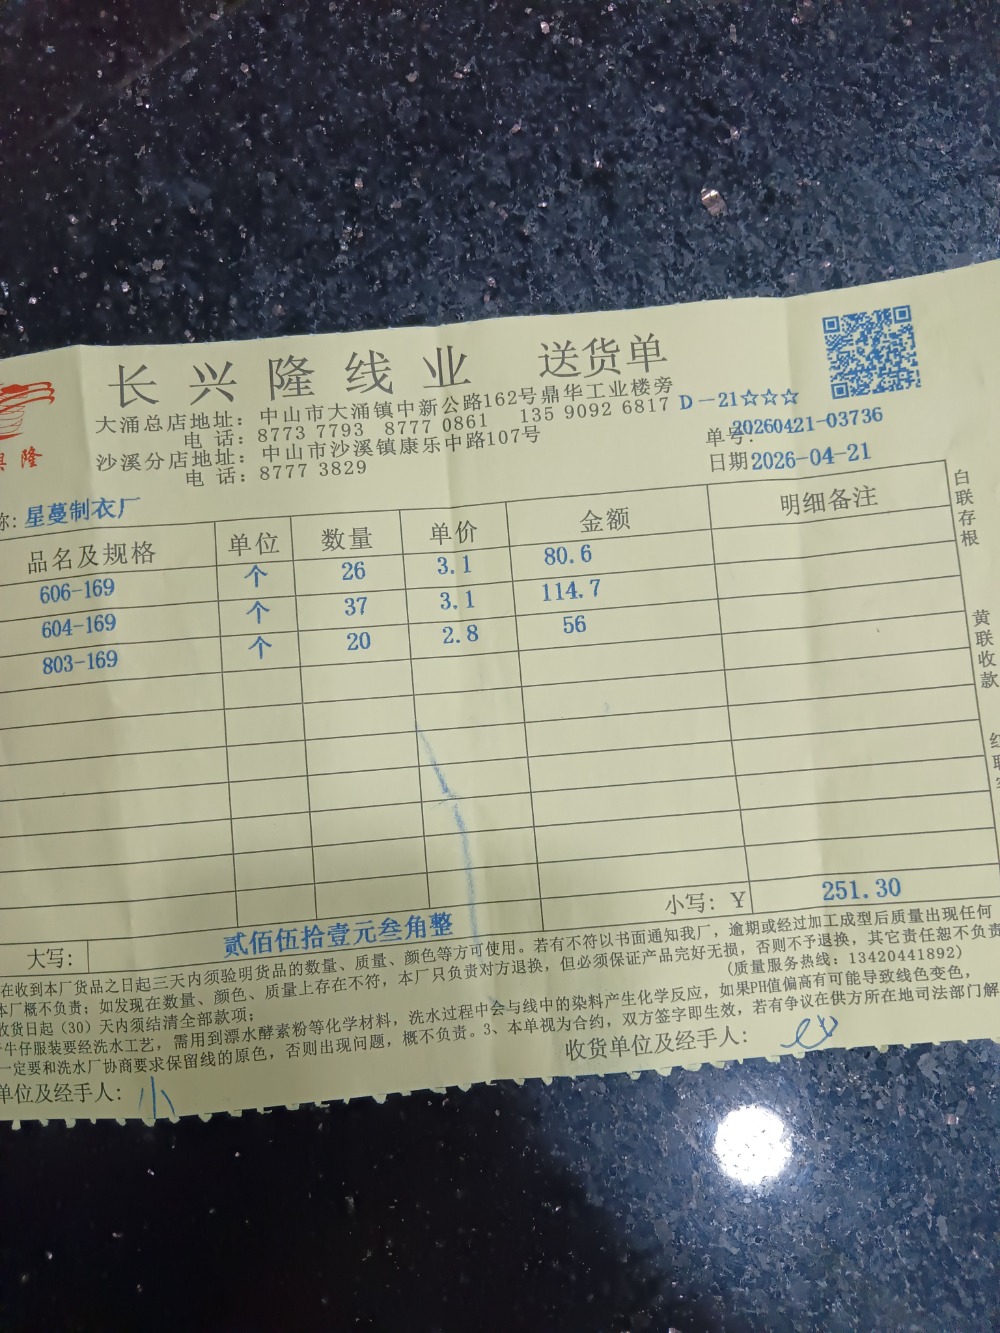 长兴隆线业 送货单
隆
大涌总店地址：中山市大涌镇中新公路162号鼎华工业楼旁
电 话：8773 7793 8777 0861 135 9092 6817
D－21☆☆☆
沙溪分店地址：中山市沙溪镇康乐中路107号
单号:20260421-03736
电 话：8777 3829
日期2026-04-21
称:星蔓制衣厂
品名及规格 单位 数量 单价 金额 明细备注
606-169 个 26 3.1 80.6
604-169 个 37 3.1 114.7
803-169 个 20 2.8 56
白联存根
黄联收款
大写: 贰佰伍拾壹元叁角整 小写: Y 251.30
在收到本厂货品之日起三天内须验明货品的数量、质量、颜色等方可使用。若有不符以书面通知我厂，逾期或经过加工成型后质量出现任何
本厂概不负责；如发现在数量、颜色、质量上存在不符，本厂只负责对方退换，但必须保证产品完好无损，否则不予退换，其它责任恕不负责
收货日起（30）天内须结清全部款项； (质量服务热线：13420441892)
牛仔服装要经洗水工艺，需用到漂水酵素粉等化学材料，洗水过程中会与线中的染料产生化学反应，如果PH值偏高有可能导致线色变色，
一定要和洗水厂协商要求保留线的原色，否则出现问题，概不负责。3、本单视为合约，双方签字即生效，若有争议在供方所在地司法部门解
单位及经手人：小 收货单位及经手人：